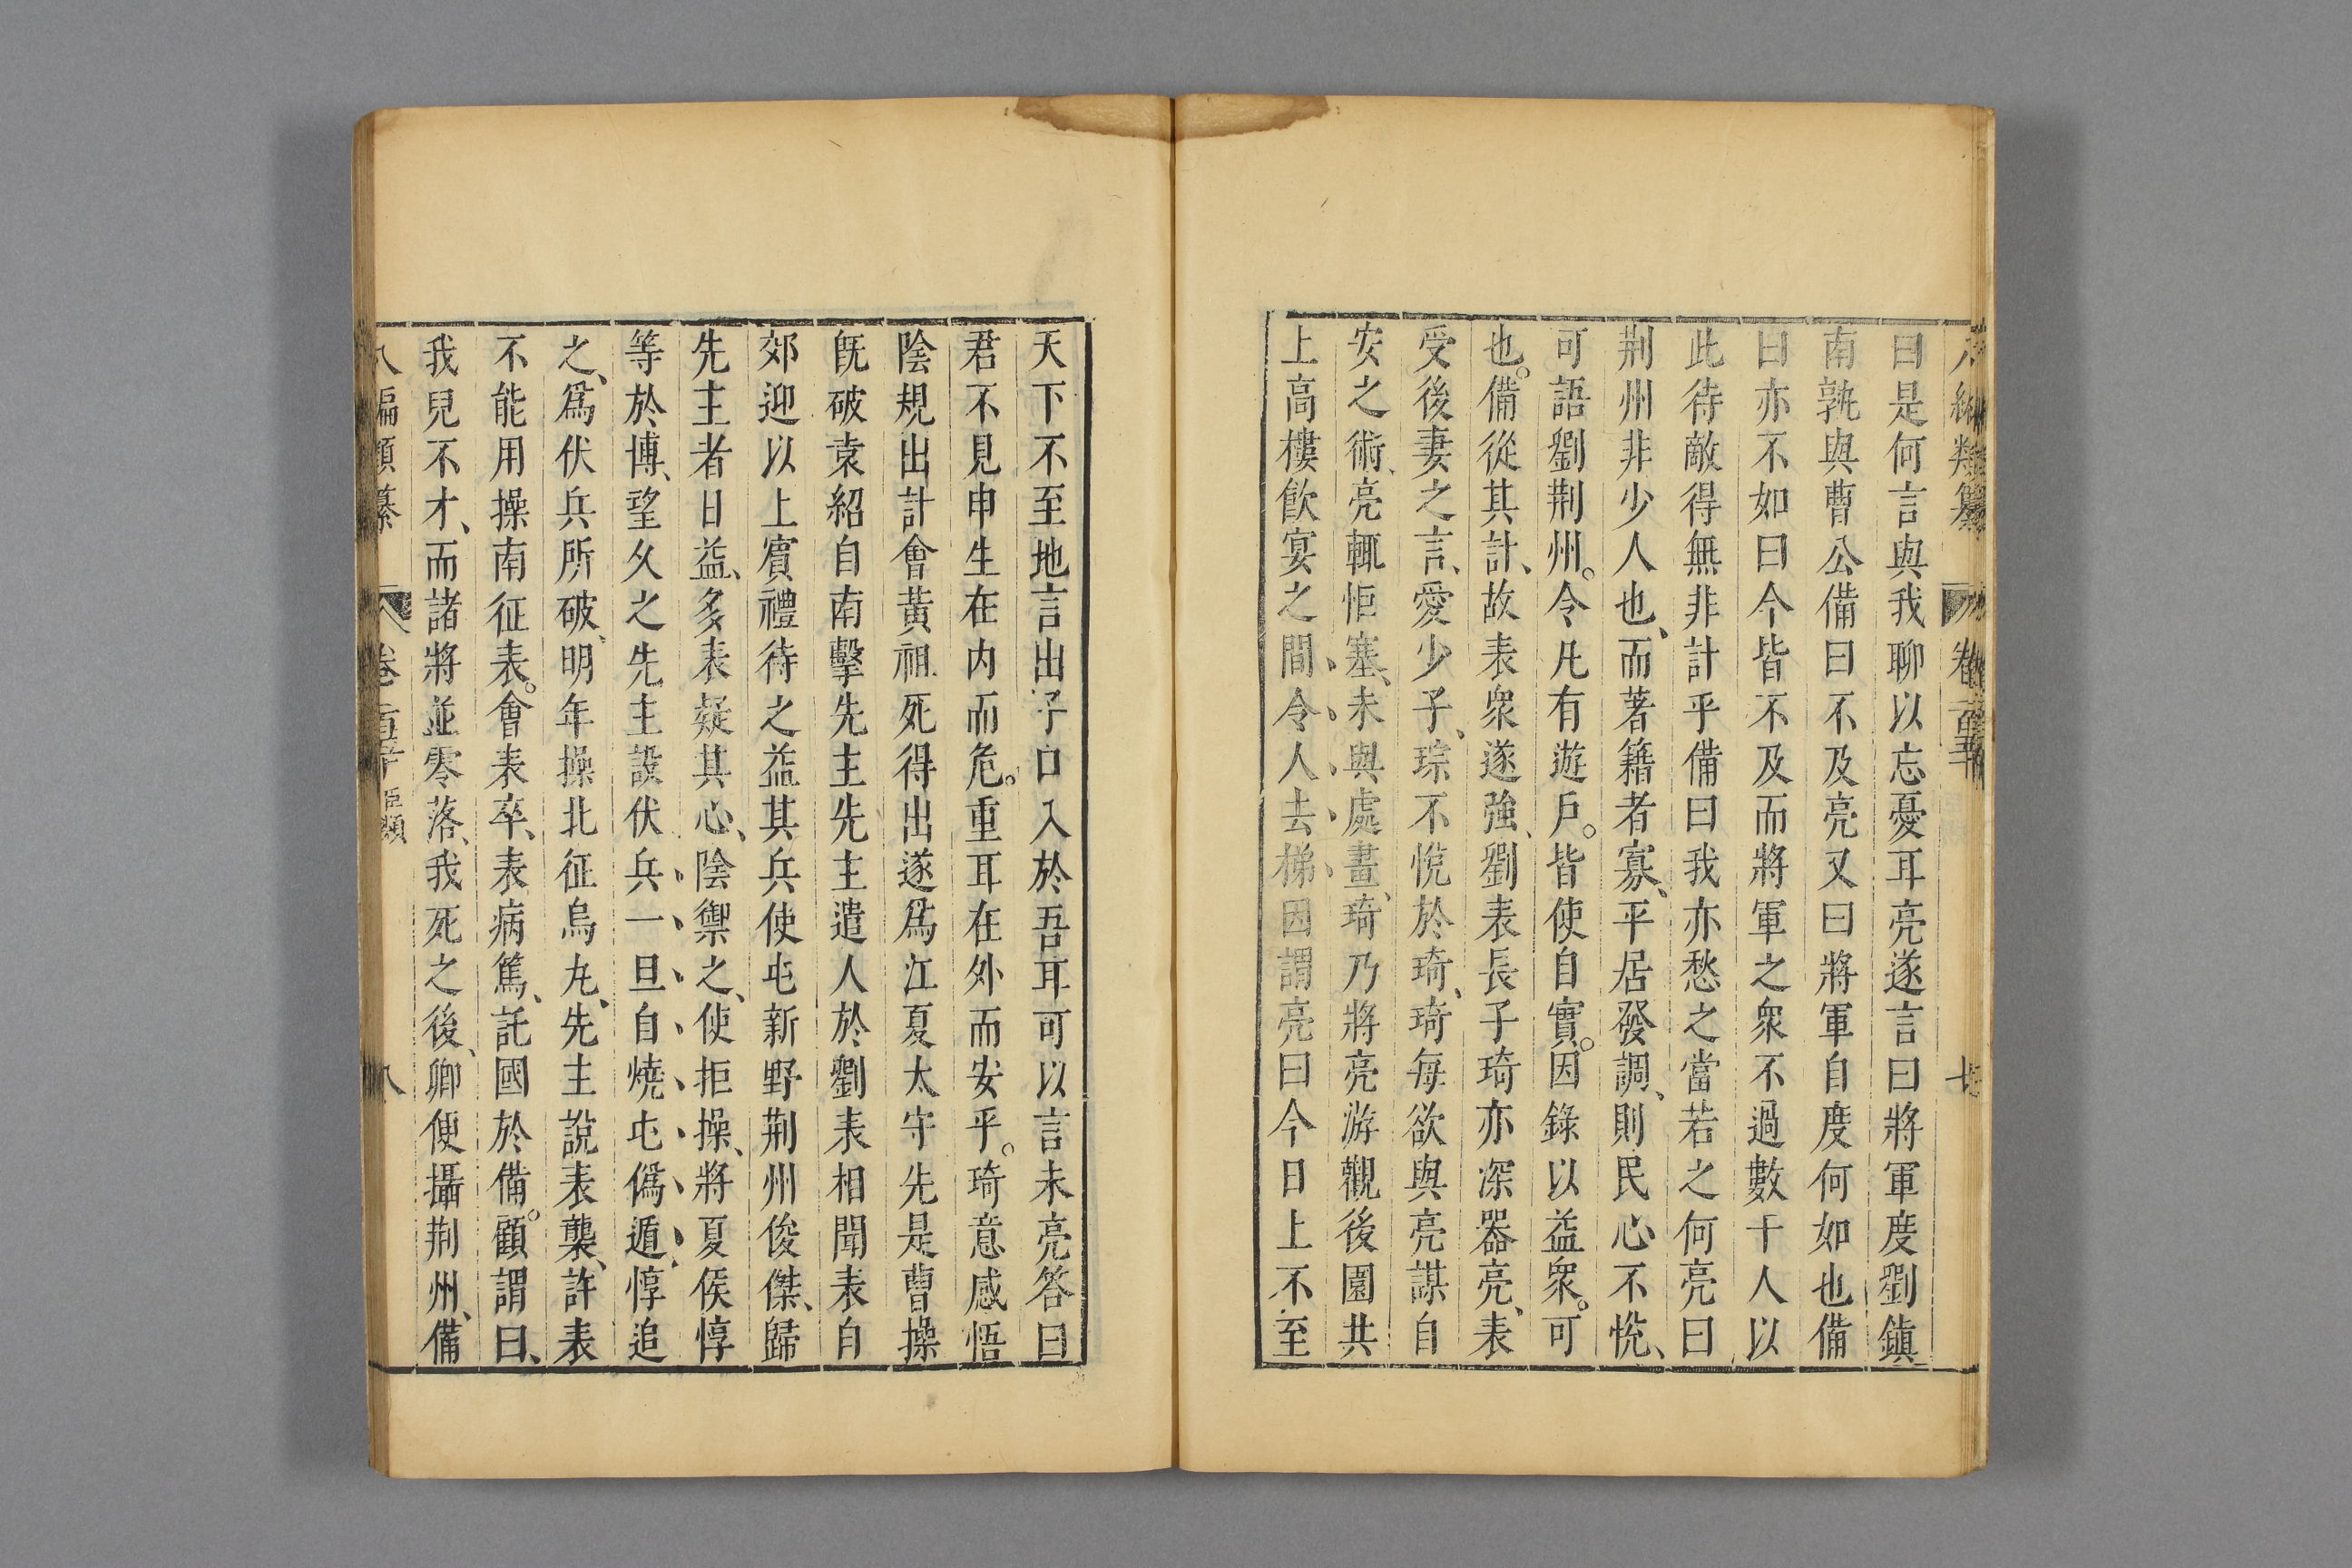 八編類纂 卷一百三 七
曰是何言與我聊以忘憂耳亮遂言曰將軍度劉鎮
南孰與曹公備曰不及亮又曰將軍自度何如也備
曰亦不如曰今皆不及而將軍之衆不過數千人以
此待敵得無非計乎備曰我亦愁之當若之何亮曰
荆州非少人也、而著籍者寡、平居發調、則民心不悅、
可語劉荆州。令凡有遊戶。皆使自實。因錄以益衆。可
也。備從其計、故表衆遂強、劉表長子琦亦深器亮、表
受後妻之言、愛少子、琮不悅於琦、琦每欲與亮謀自
安之術、亮輒拒塞、未與處畫、琦乃將亮游觀後園共
上高樓飲宴之間、令、人、去、梯、因謂亮曰今日上不至
天下不至地言出子口入於吾耳可以言未亮答曰
君不見申生在内而危。重耳在外而安乎。琦意感悟
陰規出計會黃祖死得出遂爲江夏太守先是曹操
旣破袁紹自南擊先主先主遣人於劉表相聞表自
郊迎以上賓禮待之益其兵使屯新野荆州俊傑、歸
先主者日益、多表疑其心、陰禦之、使拒操、將夏侯惇
等於博、望久之先主設伏兵、一、旦、自、燒、屯、僞、遁、惇追
之、爲伏兵所破、明年操北征烏丸、先主說表襲、許表
不能用操南征表。會表卒、表病篤、託國於備。顧謂曰、
我兒不才、而諸將並零落、我死之後、卿便攝荆州、備
八編類纂 卷一百 臣類 八